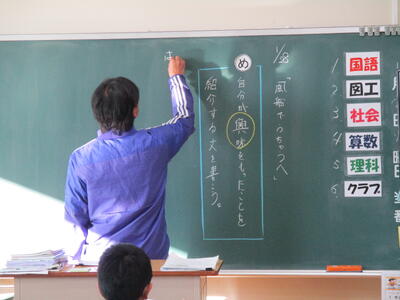 1/28
「風船でうちゅうへ」
め
自分が興味をもったことを
紹介する文を書こう。
は
1 国語
2 図工
3 社会
4 算数
5 理科
6 クラブ